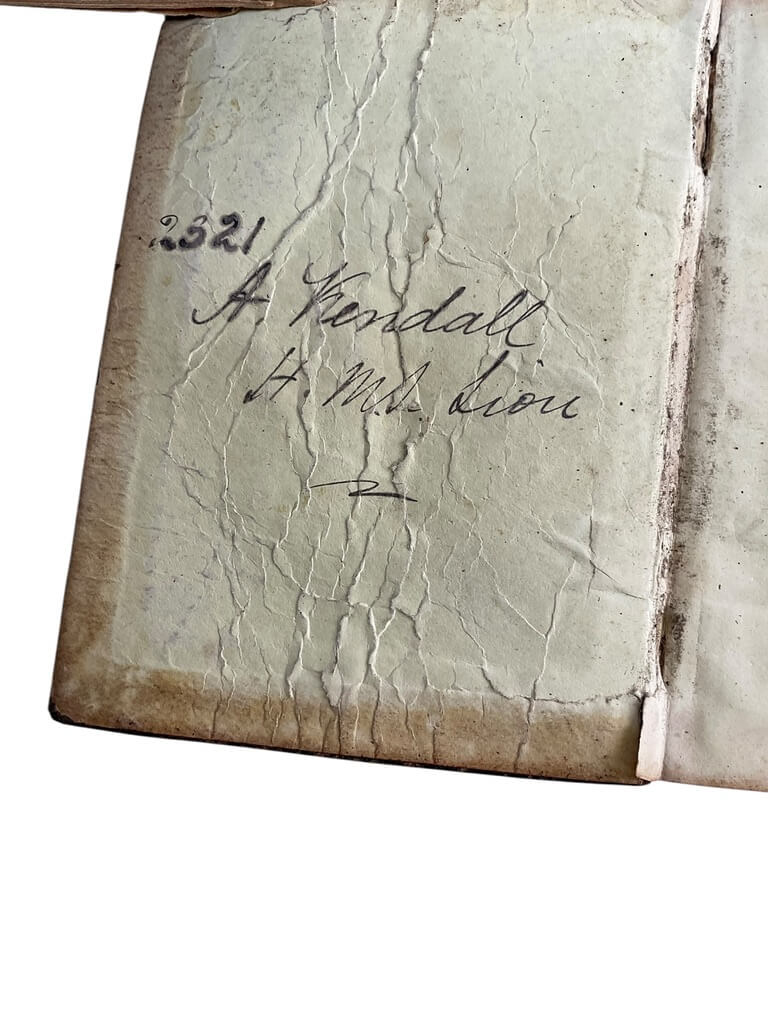 2321
A. Kendall
H. M.S. Lion